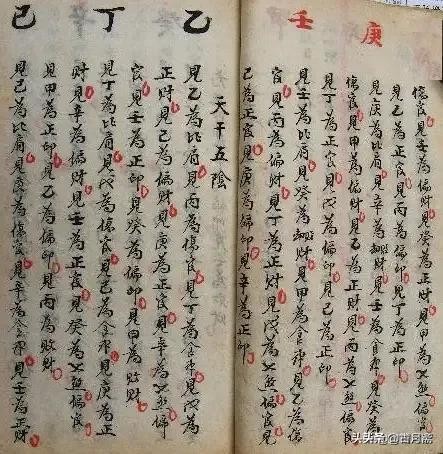 庚
壬
傷官見壬為偏財見癸為正財見甲為七煞偏官
見乙為正官見丙為偏印見丁為正印
見庚為比肩見辛為刼財見壬為食神見癸為
傷官見甲為偏財見乙為正財見丙為七煞偏官
見丁為正官見戊為偏印見己為正印
見壬為比肩見癸為刼財見甲為食神見乙為傷
官見丙為偏財見丁為正財見戊為七煞偏官見
己為正官見庚為偏印見辛為正印
乙
丁
己
天干五陰
見乙為比肩見丙為傷官見丁為食神見戊為
正財見己為偏財見庚為正官見辛為七煞偏
官見壬為正印見癸為偏印見甲為敗財
見丁為比肩見戊為傷官見己為食神見庚為正
財見辛為偏財見壬為正官見癸為七煞偏官
見甲為正印見乙為偏印見丙為敗財
見己為比肩見庚為傷官見辛為食神見壬為正財